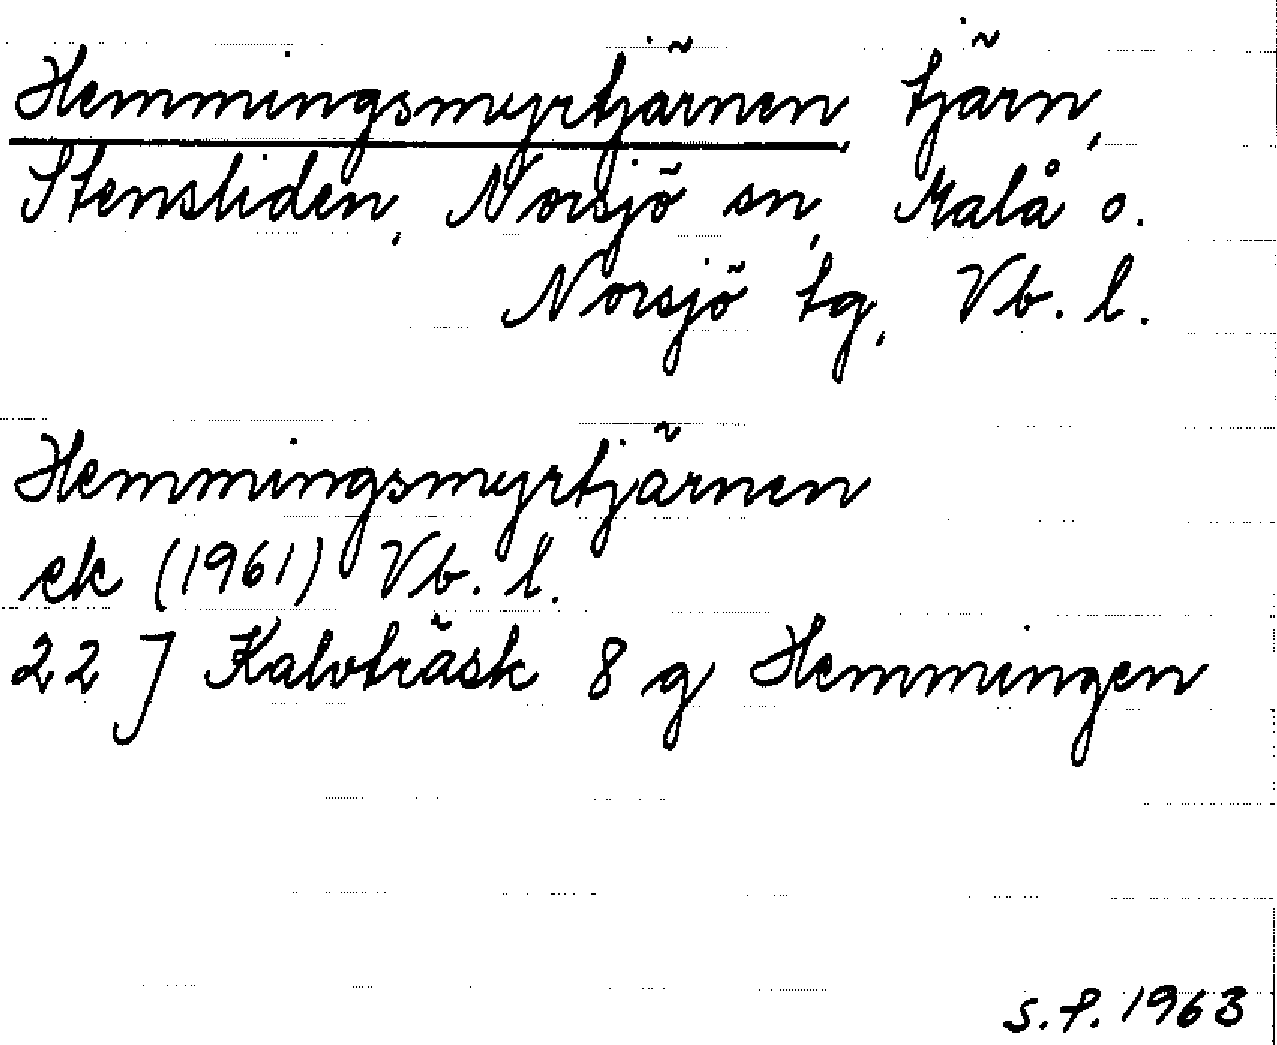 Hemmingsmyrtjärnen, tjärn,
Stensliden, Norsjö sn, Malå o.
Norsjö tg, Vb. l.
Hemmingsmyrtjärnen
ek (1961) Vb. l.
22 J Kalvträsk 8 g Hemmingen
S.P. 1963